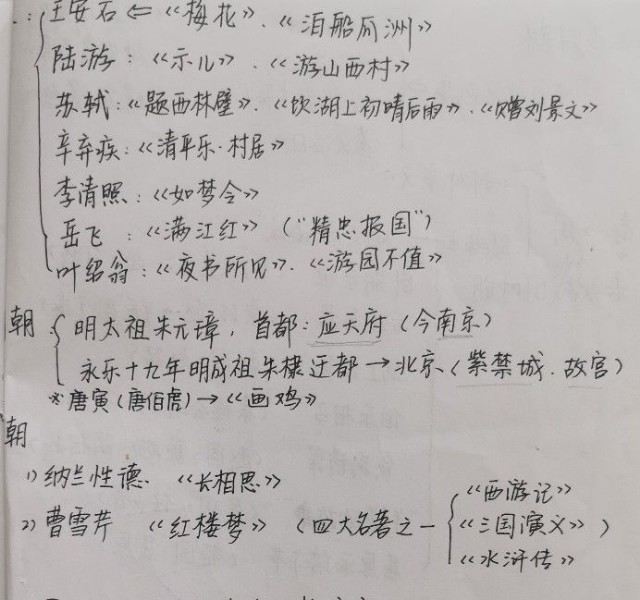 王安石 ⇐ 《梅花》.《泊船瓜洲》
陆游：《示儿》.《游山西村》
苏轼：《题西林壁》.《饮湖上初晴后雨》.《赠刘景文》
辛弃疾：《清平乐·村居》
李清照：《如梦令》
岳飞：《满江红》（"精忠报国"）
叶绍翁：《夜书所见》.《游园不值》
朝 明太祖朱元璋，首都：应天府（今南京）
永乐十九年明成祖朱棣迁都→北京（紫禁城.故宫）
※唐寅（唐伯虎）→《画鸡》
朝
1）纳兰性德.《长相思》
《西游记》
2）曹雪芹 《红楼梦》（四大名著之一 《三国演义》）
《水浒传》